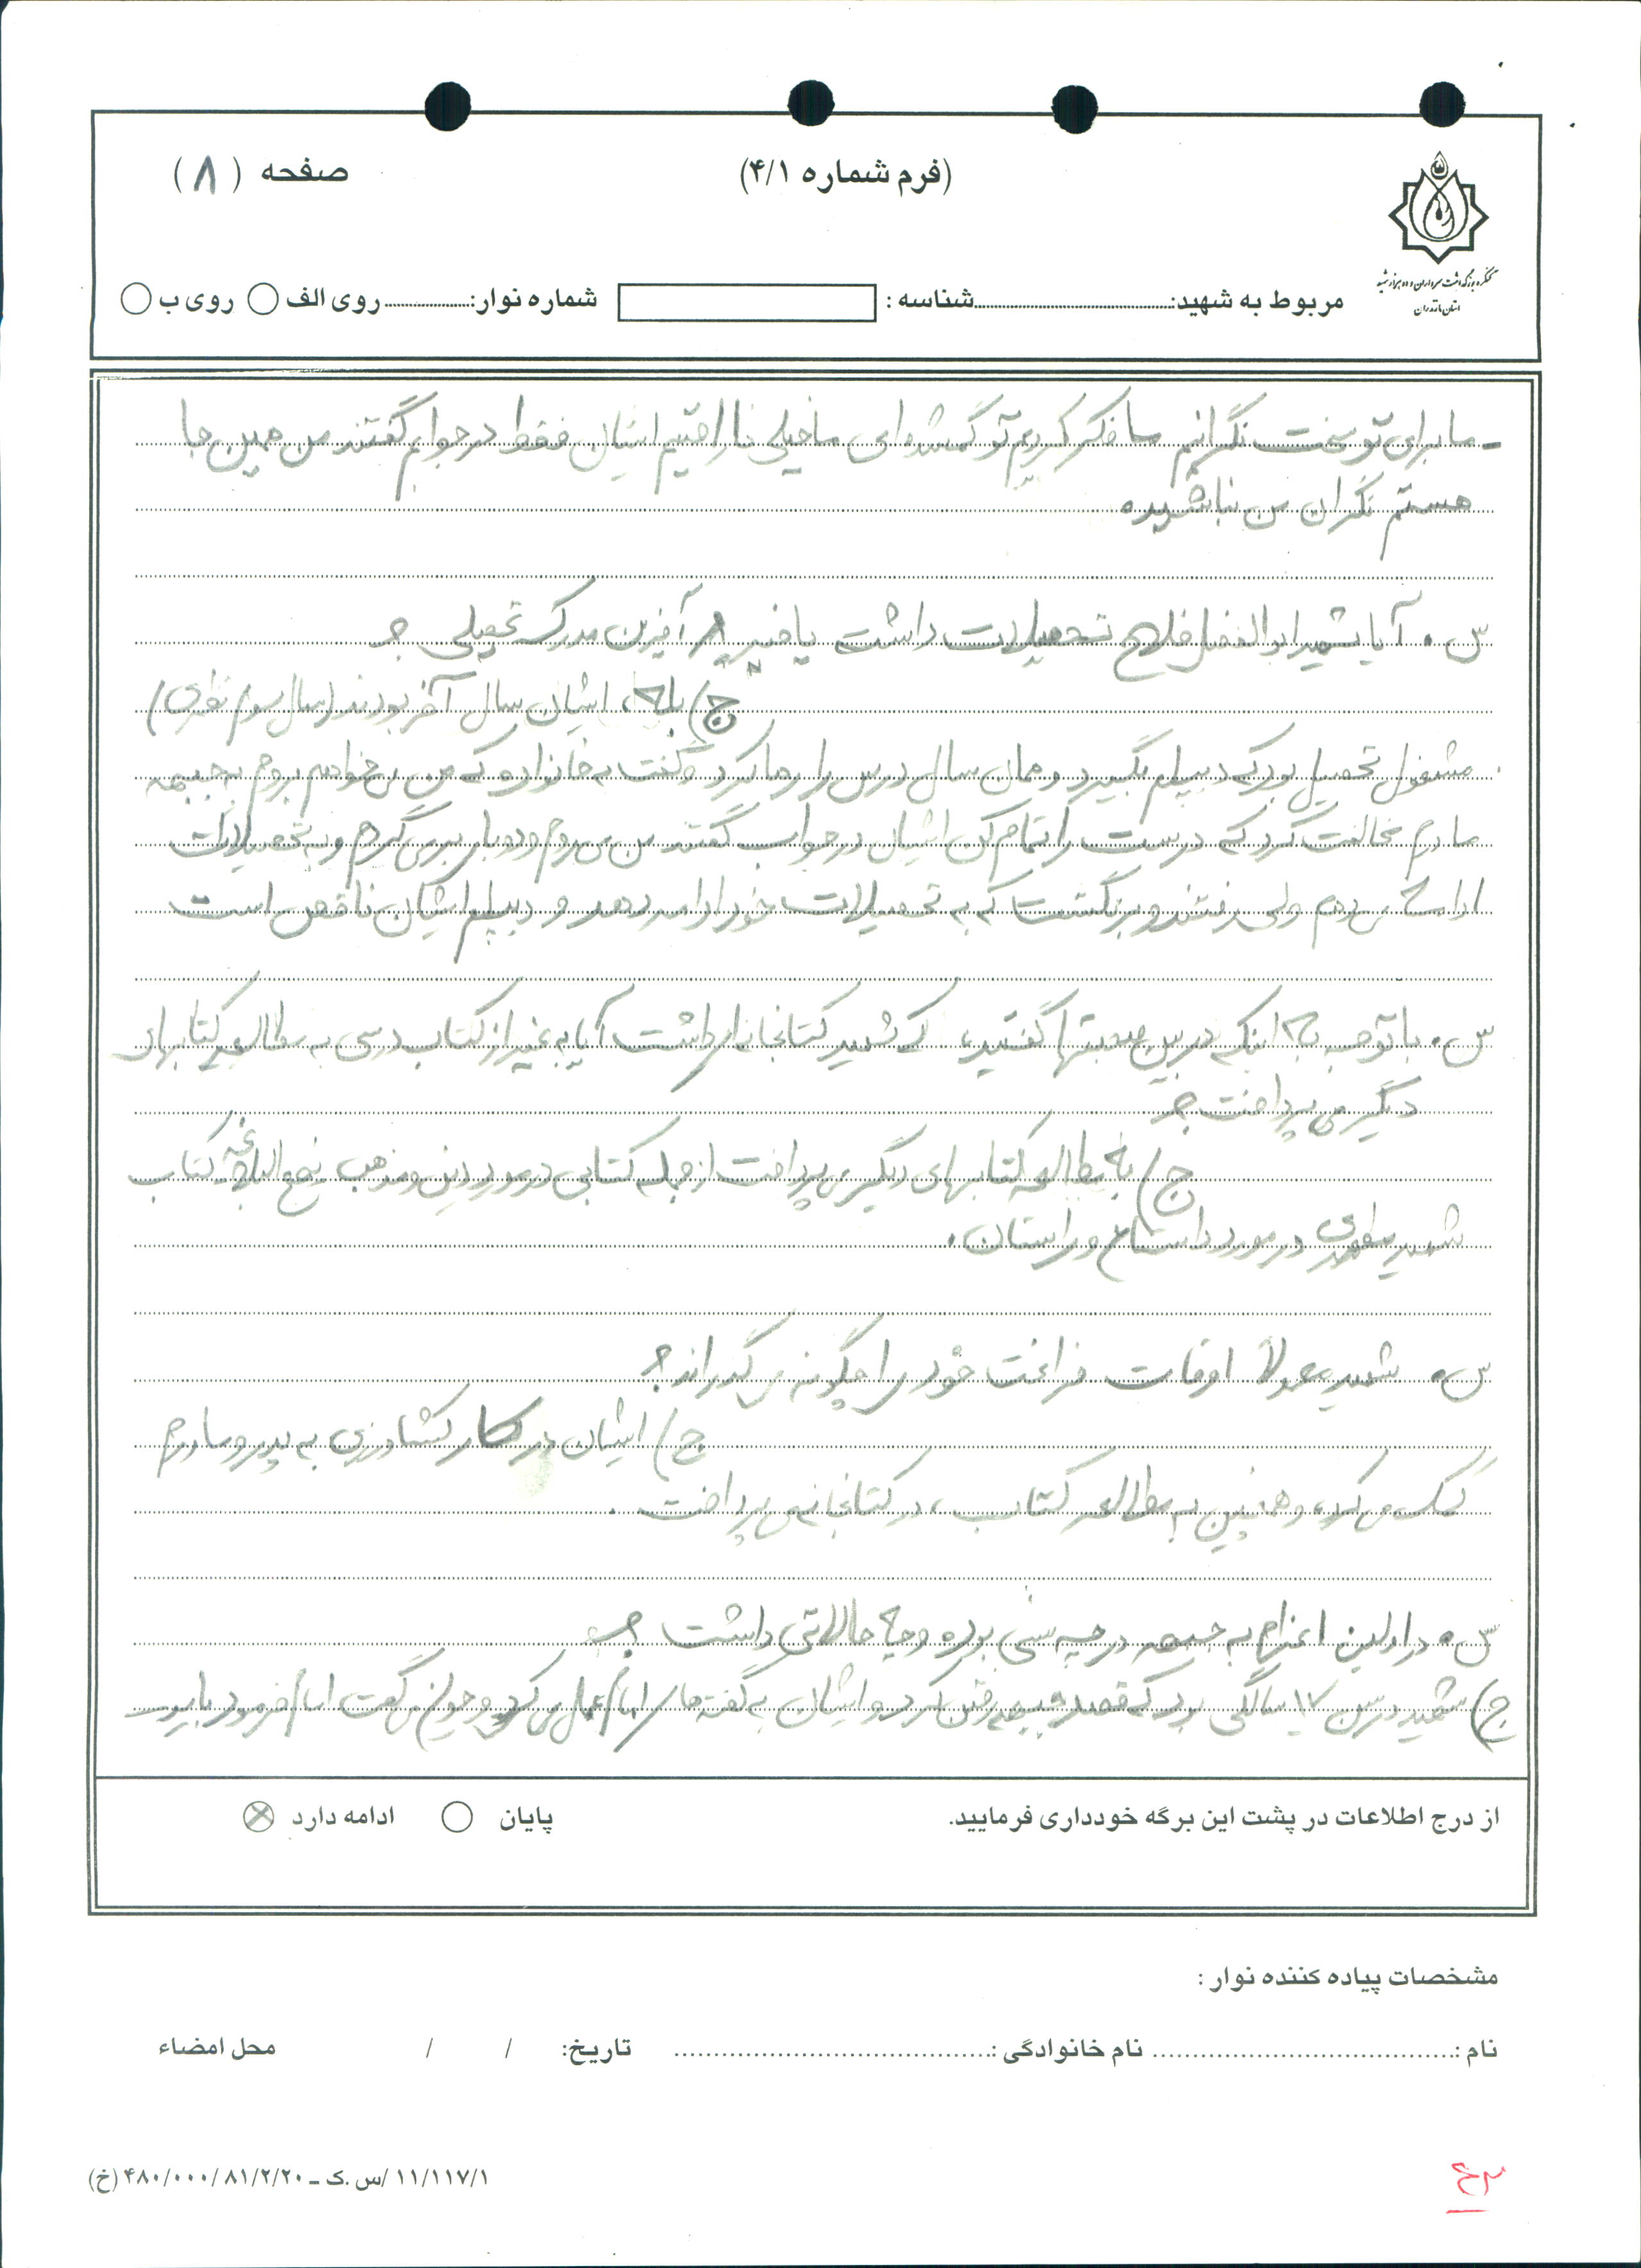 (فرم شماره ۴/۱)
صفحه (۸)
کنگره بزرگداشت سرداران و ده هزار شهید
استان مازندران
مربوط به شهید: شناسه : شماره نوار: روی الف روی ب
ـ ما برای تو سخت نگرانیم ما فکر کردیم تو گمشده‌ای ما خیلی ناراحتیم ایشان فقط در جوابم گفتند من همین جا
هستم نگران من نباشید.
س. آیا شهید ابوالفضل فلاح تحصیلات داشت یا خیر آخرین مدرک تحصیلی ؟
ج) بله، ایشان سال آخر بودند (سال سوم نظری)
مشغول تحصیل بود که دیپلم بگیرد و همان سال درس را رها کرد و گفت به خانواده که من می خواهم بروم به جبهه
مادرم مخالفت کرد که درست را تمام کن ایشان در جواب گفتند من می روم و دوباره برمی گردم و به تحصیلات
ادامه می دهم ولی رفتند و برنگشت که به تحصیلات خود ادامه دهد و دیپلم ایشان ناقص است
س. با توجه به اینکه در بین صحبتها گفتید، که شهید کتابخانه داشت آیا به غیر از کتاب درسی به مطالعه کتابهای
دیگر می پرداخت ؟
ج) به مطالعه کتابهای دیگر می پرداخت از جمله کتابی در مورد دین و مذهب نهج البلاغه کتاب
شهید مطهری در مورد داستان راستان.
س. شهید معمولاً اوقات فراغت خود را چگونه می گذراند ؟
ج) ایشان در کار کشاورزی به پدر و مادرم
کمک می کرد، و همچنین به مطالعه کتاب، در کتابخانه می پرداخت.
س. در اولین اعزام به جبهه در چه سنی بوده و چه حالاتی داشت ؟
ج) شهید در سن ۱۷ سالگی بود که قصد جبهه رفتن کرد و ایشان به گفته های امام عمل می کرد و می گفت امام فرمود باید
از درج اطلاعات در پشت این برگه خودداری فرمایید.
پایان ادامه دارد
مشخصات پیاده کننده نوار :
نام : نام خانوادگی : تاریخ: / / محل امضاء
۱۱/۱۱۷/۱ /س .ک ـ ۸۱/۲/۲۰ /۴۸۰/۰۰۰ (خ)